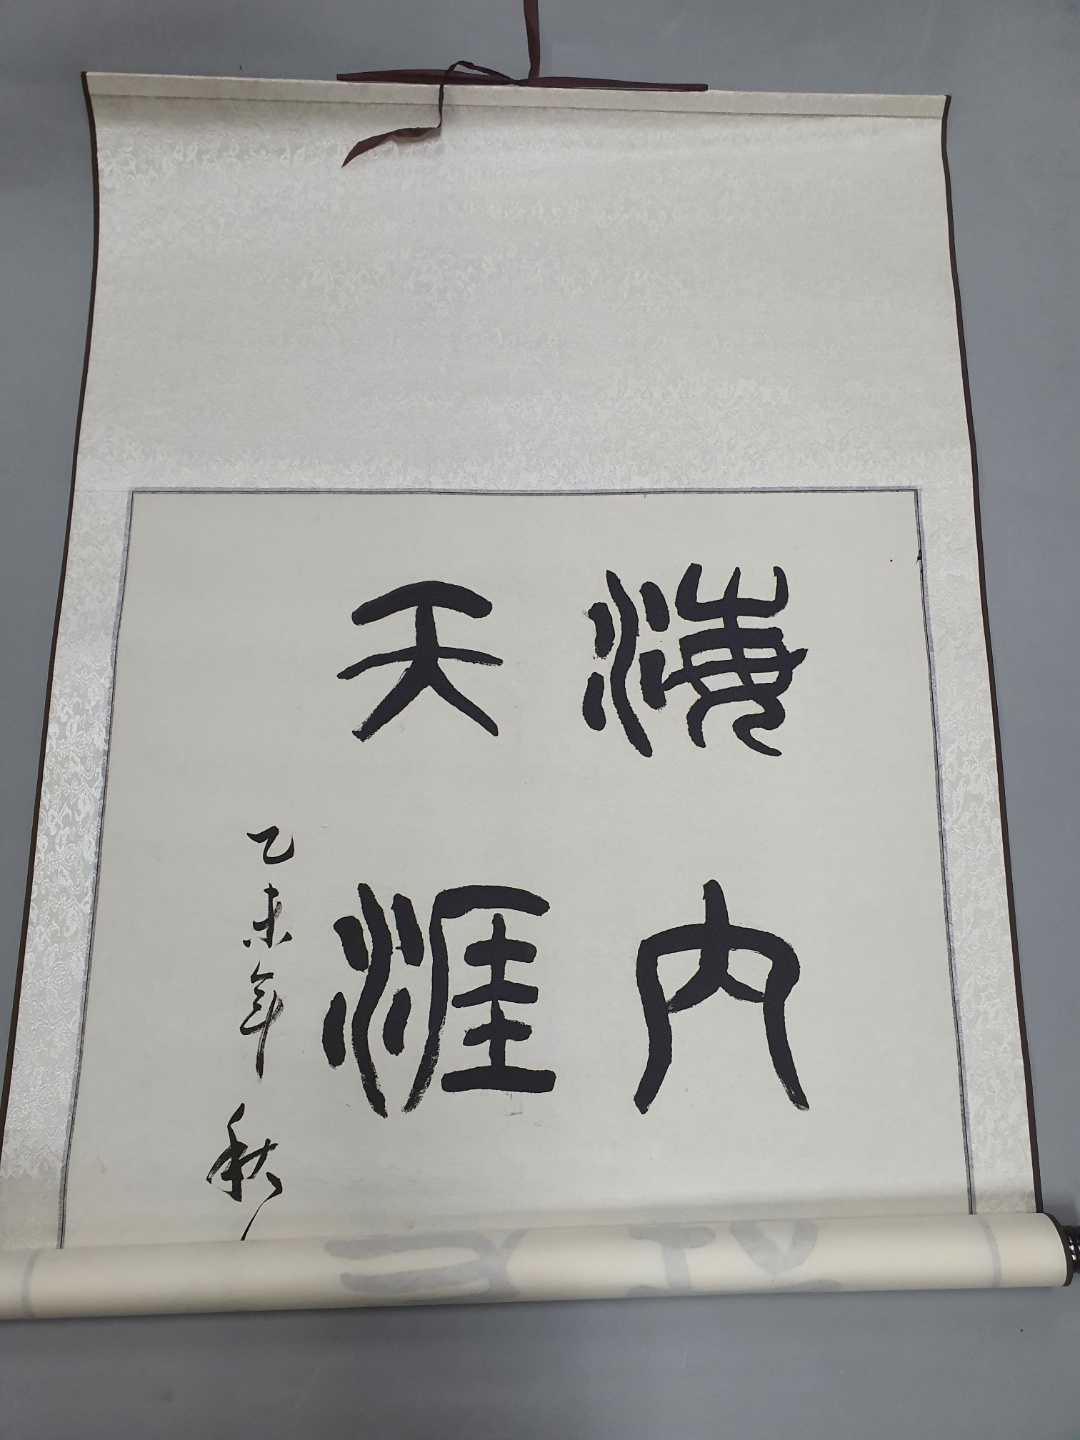 海内
天涯
乙未年秋